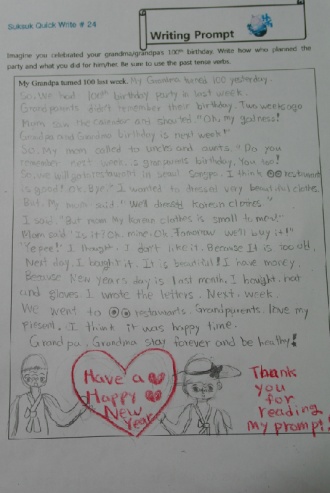 Suksuk Quick Write # 24
Writing Prompt
Imagine you celebrated your grandma/grandpa's 100th birthday. Write how who planned the
party and what you did for him/her. Be sure to use the past tense verbs.
My Grandpa turned 100 last week. My Grandma turned 100 yesterday.
So, we had 100th birthday party is last week.
Grandparents didn't remember their birthday. Two weeks ago
Mom saw the calendar and shouted "Oh, my godness!
Grandpa and Grandma birthday is next week!"
So, My mom called to uncles and aunts. "Do you
remember next week is grandparents birthday. You too!
So, we will go to restaurant in Seoul. I think restaurant
is good! Ok. Bye." I wanted to dressed very beautiful clothe.
But, My mom said "We'll dressed Korean clothes."
I said "But mom my Korean clothes is small to me!"
Mom said "Is it? Oh, mine. Ok. Tomorrow we'll buy it!"
"Yepee!" I thought. I don't like it. Because It is too old.
Next day, I bought it. It is beautiful! I have money.
Because New years day is last month. I bought hat
and gloves. I wrote the letters. Next week.
We went to restaurants. Grandparents love my
present. I think it was happy time.
Grandpa, Grandma stay forever and be healthy!
Have a
Happy
New
Year
Thank
you
for
reading
my prompt!